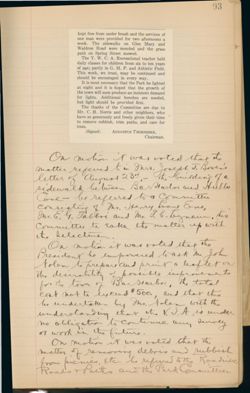 93
kept free from under brush and the services of
one man were provided for two afternoons a
week. The sidewalks on Glen Mary and
Waldron Road were mended and the grass
path on Spring street mowed.
The Y. W. C. A. Recreational teacher held
daily classes for children from six to ten years
of age; partly in G. M. P. and Athletic Field.
This work, we trust, may be continued and
should be encouraged in every way.
It is most necessary that the Park be lighted
at night and it is hoped that the growth of
the town will soon produce an insistent demand
for lights. Additional benches are needed,
but light should be provided first.
The thanks of the Committee are due to
Mr. C. H. Norris and other neighbors, who
have so generously and freely given their time
to remove rubbish, trim paths, and care for
trees.
(Signed) Augustus Thorndike,
Chairman.
On motion it was voted that the
matter referred to in Mrs. Joseph T. Bowen's
letter of August 23rd, - The building of a
sidewalk between Bar Harbor and Hulls
Cove - be referred to a Committee
consisting of Mr. Henry Lane Eno,
Mr. G. G. Talbot and Mr. L. B.
Committee to take the matter up with
the Selectmen.
On motion it was voted that the
President be empowered to ask Mr. John
Nolen to prepare and print a leaflet on
the desirability of possible improvements
for the town of Bar Harbor, the total
cost not to exceed $500. and that this
be undertaken by Mr. Nolen with the
understanding that the V.I.A. is under
no obligation to continue any survey
or work in the future.
On motion it was voted that the
matter of removing debris and rubbish
from premises etc. be referred to the Roadside
Roads & Paths and the Park Committees